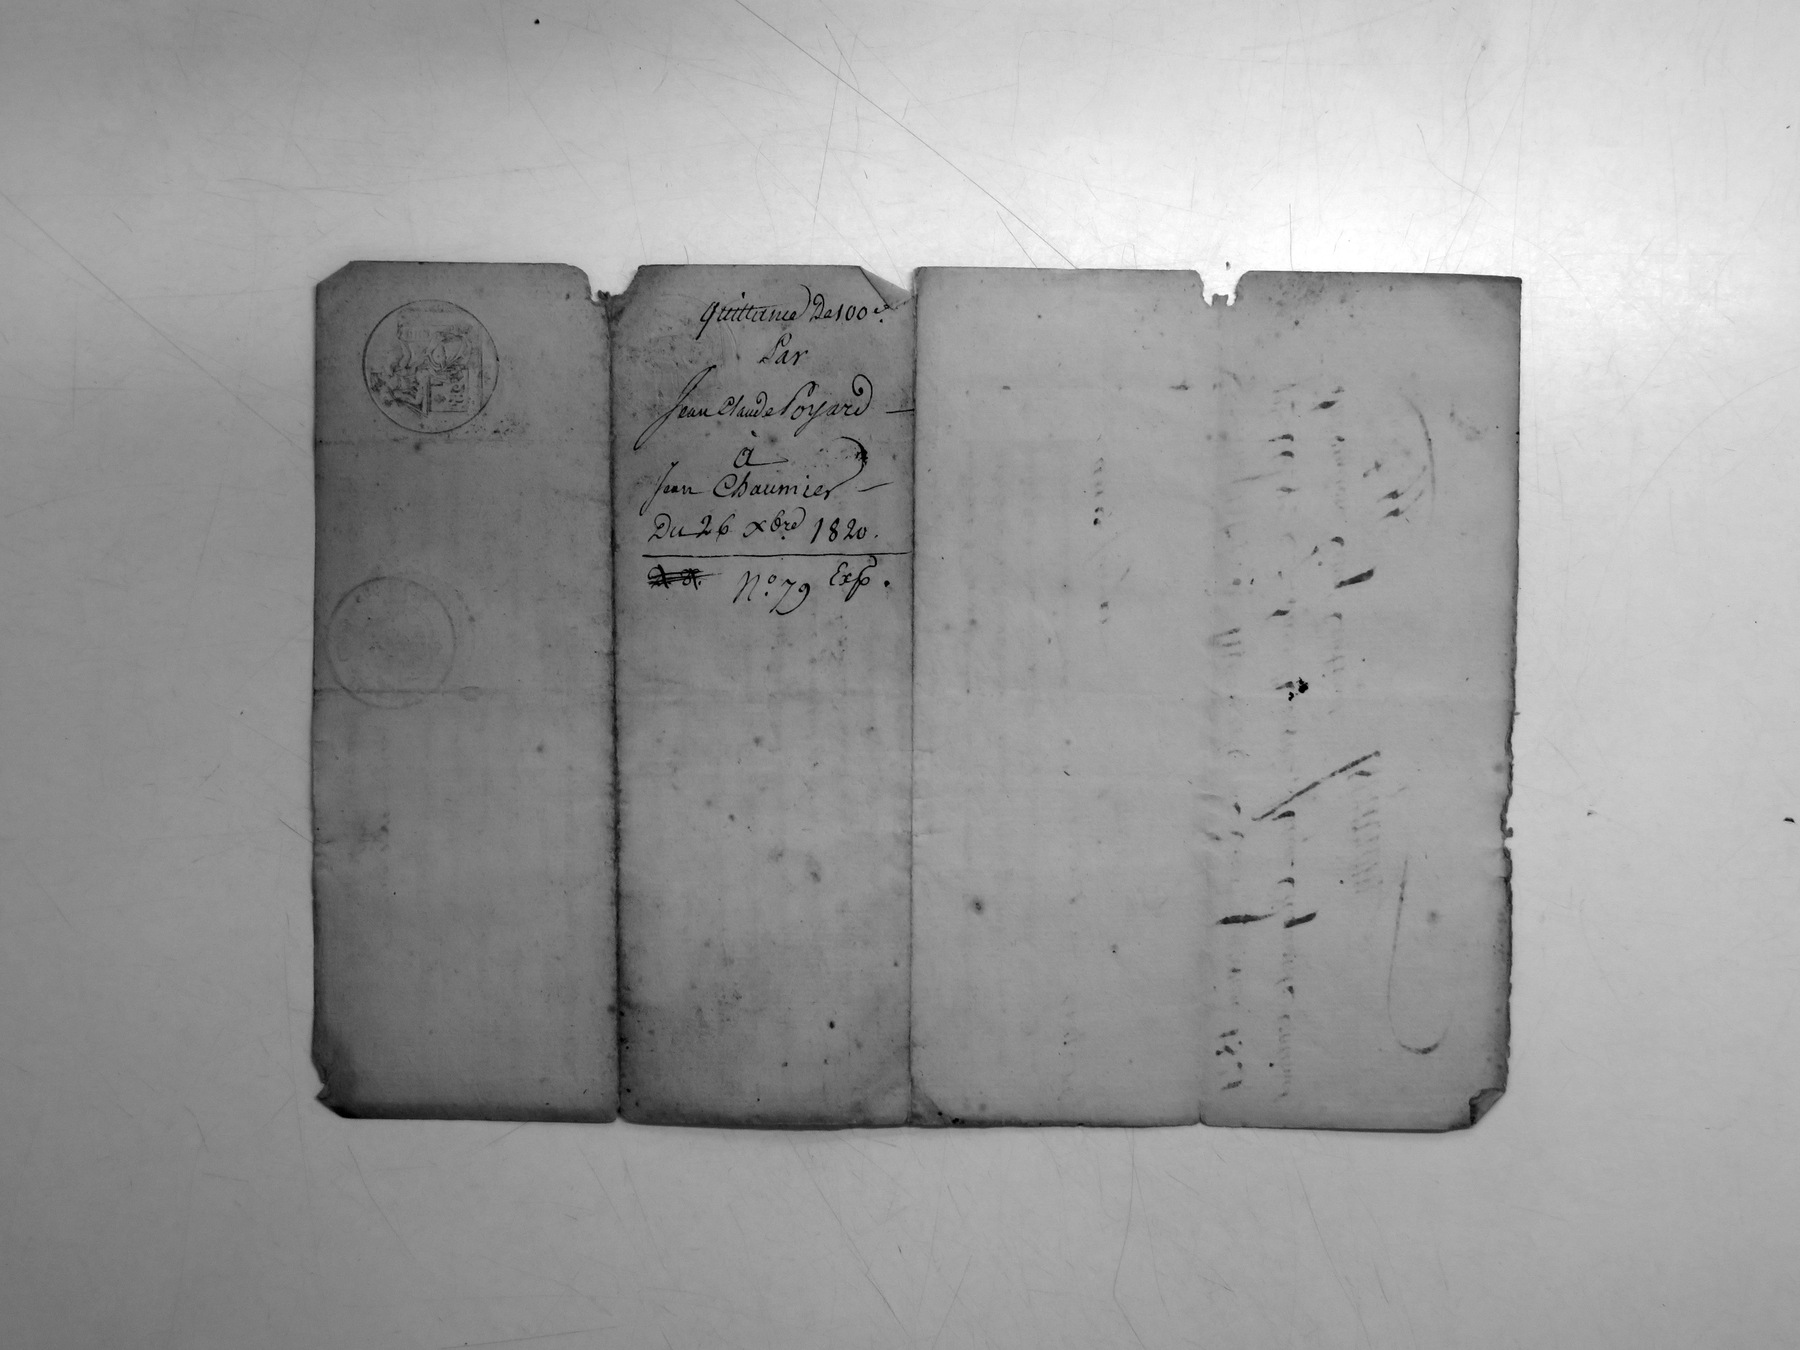 quittance De 100 f.
Par
Jean Claude Poyard
à
Jean Chaumier
Du 26 xbre 1820.
N.o 79 Exp.